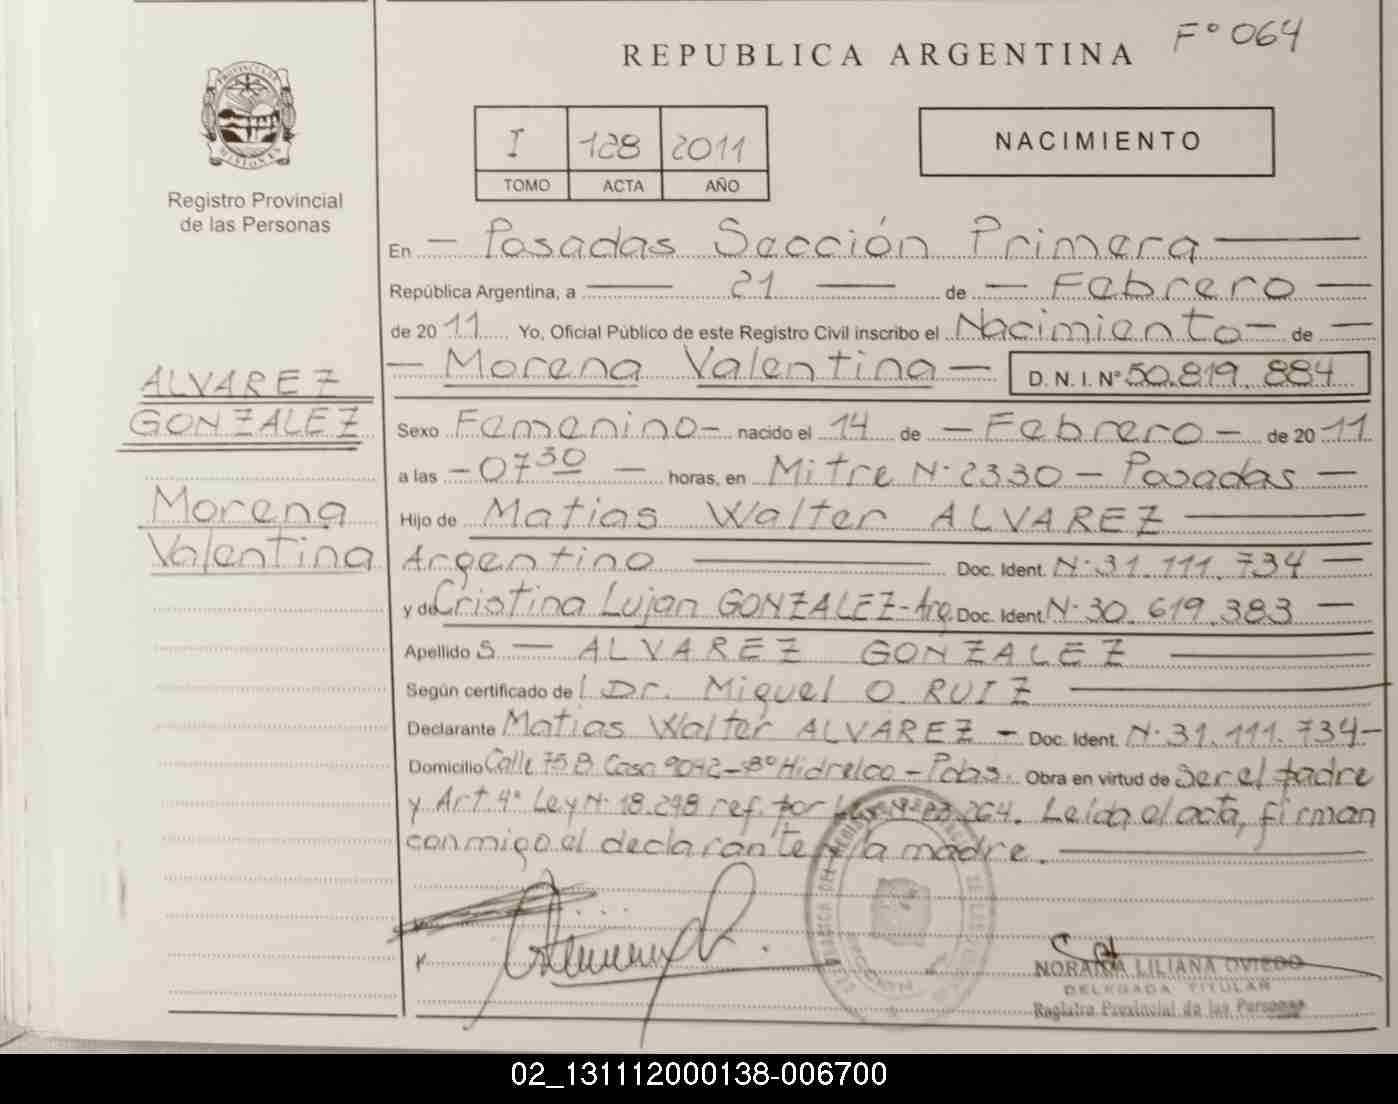 F° 064
REPUBLICA ARGENTINA
PROVINCIA DE
MISIONES
Registro Provincial
de las Personas
I 128 2011
TOMO ACTA AÑO
NACIMIENTO
En — Posadas Sección Primera —
República Argentina, a — 21 — de — Febrero —
de 2011 Yo, Oficial Público de este Registro Civil inscribo el Nacimiento — de —
— Morena Valentina — D. N. I. Nº 50.819.884
ALVAREZ
GONZALEZ
Morena
Valentina
Sexo Femenino — nacido el 14 de — Febrero — de 2011
a las — 07 30 — horas, en Mitre N· 2330 — Posadas —
Hijo de Matias Walter ALVAREZ —
Argentino — Doc. Ident. N· 31.111.734 —
y de Cristina Lujan GONZALEZ-Arg. Doc. Ident N· 30.619.383 —
Apellido S — ALVAREZ GONZALEZ —
Según certificado de l Dr. Miguel O. RUIZ —
Declarante Matias Walter ALVAREZ — Doc. Ident. N· 31.111.734 —
Domicilio Calle 75 B Casa 9042 — Bº Hidrelco — Pdas. Obra en virtud de ser el padre
y Art 4º Ley N· 18.248 ref. por Ley Nº 23.264. Leída el acta, firman
conmigo el declarante y la madre. —
NORMA LILIANA OVIEDO
DELEGADA TITULAR
Registro Provincial de las Personas
02_131112000138-006700